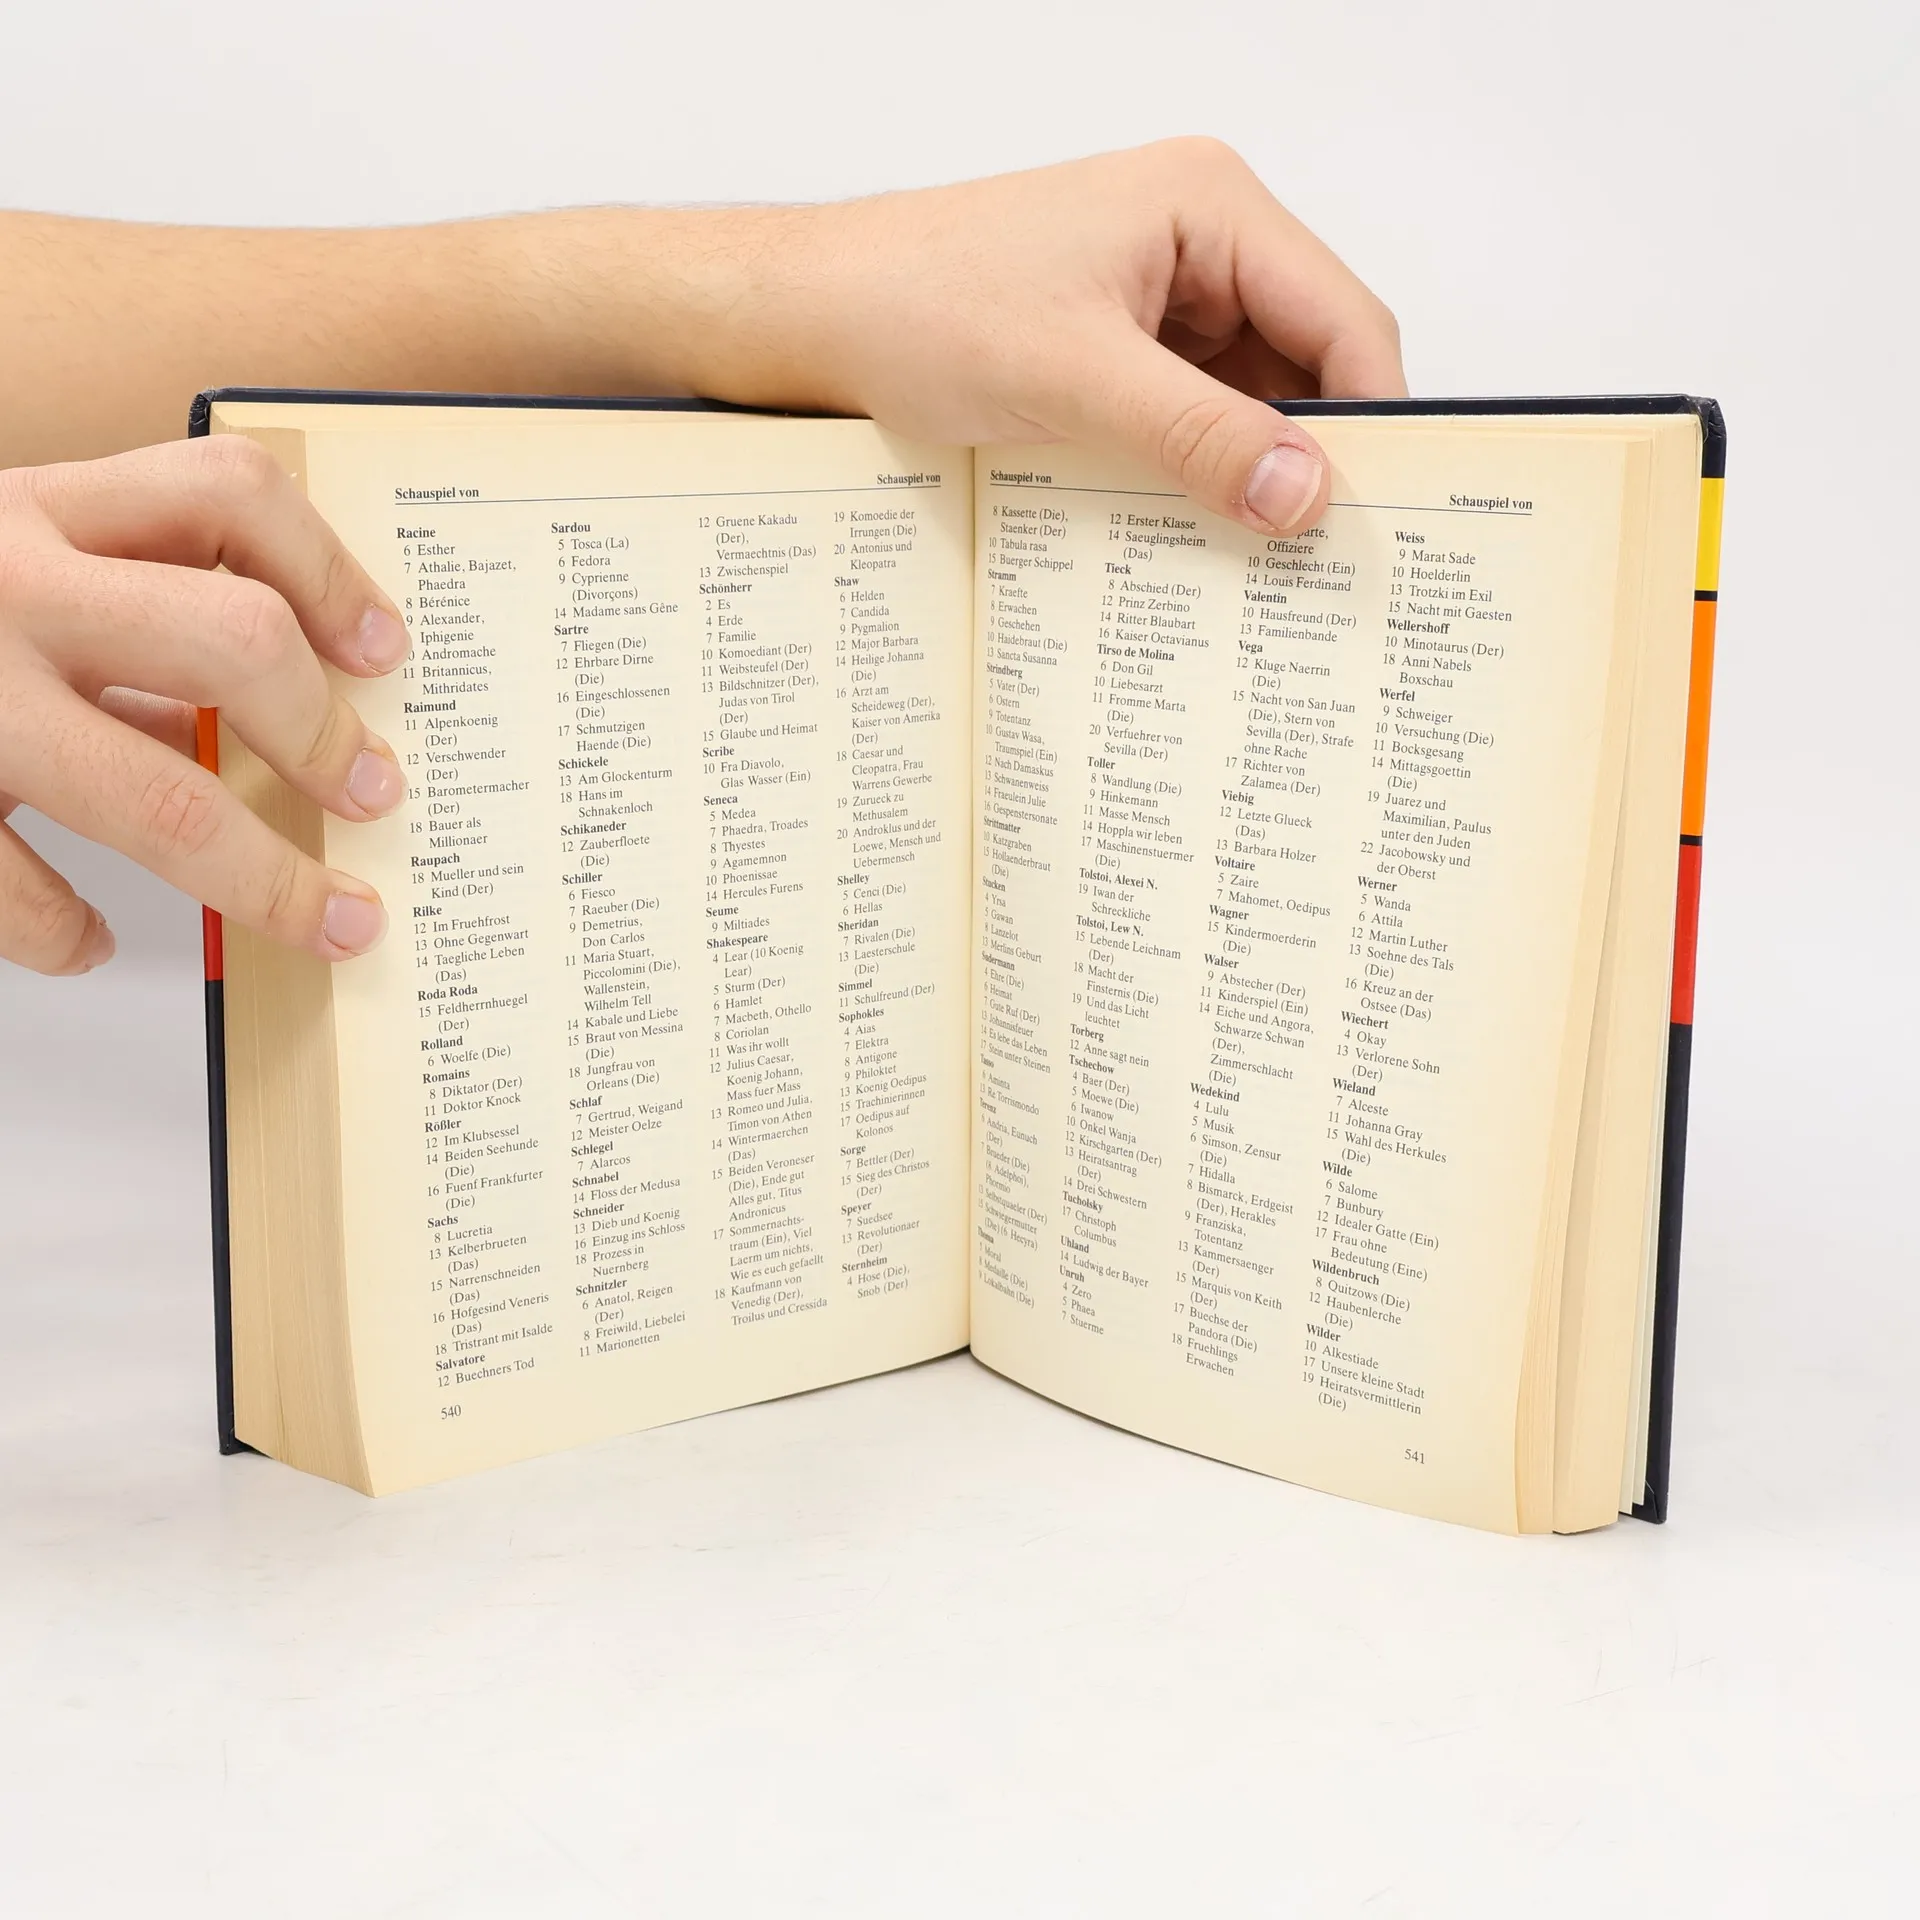 Schauspiel von
Schauspiel von
Racine
6 Esther
7 Athalie, Bajazet,
Phaedra
8 Bérénice
9 Alexander,
Iphigenie
Andromache
11 Britannicus,
Mithridates
Raimund
11 Alpenkoenig
(Der)
12 Verschwender
(Der)
15 Barometermacher
(Der)
18 Bauer als
Millionaer
Raupach
18 Mueller und sein
Kind (Der)
Rilke
12 Im Fruehfrost
13 Ohne Gegenwart
14 Taegliche Leben
(Das)
Roda Roda
15 Feldherrnhuegel
(Der)
Rolland
6 Woelfe (Die)
Romains
8 Diktator (Der)
11 Doktor Knock
Rößler
12 Im Klubsessel
14 Beiden Seehunde
(Die)
16 Fuenf Frankfurter
(Die)
Sachs
8 Lucretia
13 Kelberbrueten
(Das)
15 Narrenschneiden
(Das)
16 Hofgesind Veneris
(Das)
18 Tristrant mit Isalde
Salvatore
12 Buechners Tod
Sardou
5 Tosca (La)
6 Fedora
9 Cyprienne
(Divorçons)
14 Madame sans Gêne
Sartre
7 Fliegen (Die)
12 Ehrbare Dirne
(Die)
16 Eingeschlossenen
(Die)
17 Schmutzigen
Haende (Die)
Schickele
13 Am Glockenturm
18 Hans im
Schnakenloch
Schikaneder
12 Zauberfloete
(Die)
Schiller
6 Fiesco
7 Raeuber (Die)
9 Demetrius,
Don Carlos
11 Maria Stuart,
Piccolomini (Die),
Wallenstein,
Wilhelm Tell
14 Kabale und Liebe
15 Braut von Messina
(Die)
18 Jungfrau von
Orleans (Die)
Schlaf
7 Gertrud, Weigand
12 Meister Oelze
Schlegel
7 Alarcos
Schnabel
14 Floss der Medusa
Schneider
13 Dieb und Koenig
16 Einzug ins Schloss
18 Prozess in
Nuernberg
Schnitzler
6 Anatol, Reigen
(Der)
8 Freiwild, Liebelei
11 Marionetten
12 Gruene Kakadu
(Der),
Vermaechtnis (Das)
13 Zwischenspiel
Schönherr
2 Es
4 Erde
7 Familie
10 Komoediant (Der)
11 Weibsteufel (Der)
13 Bildschnitzer (Der),
Judas von Tirol
(Der)
15 Glaube und Heimat
Scribe
10 Fra Diavolo,
Glas Wasser (Ein)
Seneca
5 Medea
7 Phaedra, Troades
8 Thyestes
9 Agamemnon
10 Phoenissae
14 Hercules Furens
Seume
9 Miltiades
Shakespeare
4 Lear (10 Koenig
Lear)
5 Sturm (Der)
6 Hamlet
7 Macbeth, Othello
8 Coriolan
11 Was ihr wollt
12 Julius Caesar,
Koenig Johann,
Mass fuer Mass
13 Romeo und Julia,
Timon von Athen
14 Wintermaerchen
(Das)
15 Beiden Veroneser
(Die), Ende gut
Alles gut, Titus
Andronicus
17 Sommernachts-
traum (Ein), Viel
Laerm um nichts,
Wie es euch gefaellt
18 Kaufmann von
Venedig (Der),
Troilus und Cressida
19 Komoedie der
Irrungen (Die)
20 Antonius und
Kleopatra
Shaw
6 Helden
7 Candida
9 Pygmalion
12 Major Barbara
14 Heilige Johanna
(Die)
16 Arzt am
Scheideweg (Der),
Kaiser von Amerika
(Der)
18 Caesar und
Cleopatra, Frau
Warrens Gewerbe
19 Zurueck zu
Methusalem
20 Androklus und der
Loewe, Mensch und
Uebermensch
Shelley
5 Cenci (Die)
6 Hellas
Sheridan
7 Rivalen (Die)
13 Laesterschule
(Die)
Simmel
11 Schulfreund (Der)
Sophokles
4 Aias
7 Elektra
8 Antigone
9 Philoktet
13 Koenig Oedipus
15 Trachinierinnen
17 Oedipus auf
Kolonos
Sorge
7 Bettler (Der)
15 Sieg des Christos
(Der)
Speyer
7 Suedsee
13 Revolutionaer
(Der)
Sternheim
4 Hose (Die),
Snob (Der)
540
Schauspiel von
Schauspiel von
8 Kassette (Die),
Staenker (Der)
10 Tabula rasa
15 Buerger Schippel
Stramm
7 Kraefte
8 Erwachen
9 Geschehen
10 Haidebraut (Die)
13 Sancta Susanna
Strindberg
5 Vater (Der)
6 Ostern
9 Totentanz
10 Gustav Wasa,
Traumspiel (Ein)
12 Nach Damaskus
13 Schwanenweiss
14 Fraeulein Julie
16 Gespenstersonate
Strittmatter
10 Katzgraben
15 Hollaenderbraut
(Die)
Stucken
4 Yna
5 Gawan
8 Lanzelot
13 Merlins Geburt
Sudermann
4 Ehre (Die)
6 Heimat
7 Gute Ruf (Der)
13 Johannisfeuer
14 Es lebe das Leben
17 Stein unter Steinen
Tasso
6 Aminta
13 Re Torrismondo
Terenz
6 Andria, Eunuch
(Der)
7 Brueder (Die)
(8 Adelphoi),
Phormio
13 Selbstquaeler (Der)
15 Schwiegermutter
(Die) (6 Hecyra)
Thoma
5 Moral
8 Medaille (Die)
9 Lokalbahn (Die)
12 Erster Klasse
14 Saeuglingsheim
(Das)
Tieck
8 Abschied (Der)
12 Prinz Zerbino
14 Ritter Blaubart
16 Kaiser Octavianus
Tirso de Molina
6 Don Gil
10 Liebesarzt
11 Fromme Marta
(Die)
20 Verfuehrer von
Sevilla (Der)
Toller
8 Wandlung (Die)
9 Hinkemann
11 Masse Mensch
14 Hoppla wir leben
17 Maschinenstuermer
(Die)
Tolstoi, Alexei N.
19 Iwan der
Schreckliche
Tolstoi, Lew N.
15 Lebende Leichnam
(Der)
18 Macht der
Finsternis (Die)
19 Und das Licht
leuchtet
Torberg
12 Anne sagt nein
Tschechow
4 Baer (Der)
5 Moewe (Die)
6 Iwanow
10 Onkel Wanja
12 Kirschgarten (Der)
13 Heiratsantrag
(Der)
14 Drei Schwestern
Tucholsky
17 Christoph
Columbus
Uhland
14 Ludwig der Bayer
Unruh
4 Zero
5 Phaea
7 Stuerme
Offiziere
10 Geschlecht (Ein)
14 Louis Ferdinand
Valentin
10 Hausfreund (Der)
13 Familienbande
Vega
12 Kluge Naerrin
(Die)
15 Nacht von San Juan
(Die), Stern von
Sevilla (Der), Strafe
ohne Rache
17 Richter von
Zalamea (Der)
Viebig
12 Letzte Glueck
(Das)
13 Barbara Holzer
Voltaire
5 Zaire
7 Mahomet, Oedipus
Wagner
15 Kindermoerderin
(Die)
Walser
9 Abstecher (Der)
11 Kinderspiel (Ein)
14 Eiche und Angora,
Schwarze Schwan
(Der),
Zimmerschlacht
(Die)
Wedekind
4 Lulu
5 Musik
6 Simson, Zensur
(Die)
7 Hidalla
8 Bismarck, Erdgeist
(Der), Herakles
9 Franziska,
Totentanz
13 Kammersaenger
(Der)
15 Marquis von Keith
(Der)
17 Buechse der
Pandora (Die)
18 Fruehlings
Erwachen
Weiss
9 Marat Sade
10 Hoelderlin
13 Trotzki im Exil
15 Nacht mit Gaesten
Wellershoff
10 Minotaurus (Der)
18 Anni Nabels
Boxschau
Werfel
9 Schweiger
10 Versuchung (Die)
11 Bocksgesang
14 Mittagsgoettin
(Die)
19 Juarez und
Maximilian, Paulus
unter den Juden
22 Jacobowsky und
der Oberst
Werner
5 Wanda
6 Attila
12 Martin Luther
13 Soehne des Tals
(Die)
16 Kreuz an der
Ostsee (Das)
Wiechert
4 Okay
13 Verlorene Sohn
(Der)
Wieland
7 Alceste
11 Johanna Gray
15 Wahl des Herkules
(Die)
Wilde
6 Salome
7 Bunbury
12 Idealer Gatte (Ein)
17 Frau ohne
Bedeutung (Eine)
Wildenbruch
8 Quitzows (Die)
12 Haubenlerche
(Die)
Wilder
10 Alkestiade
17 Unsere kleine Stadt
19 Heiratsvermittlerin
(Die)
541